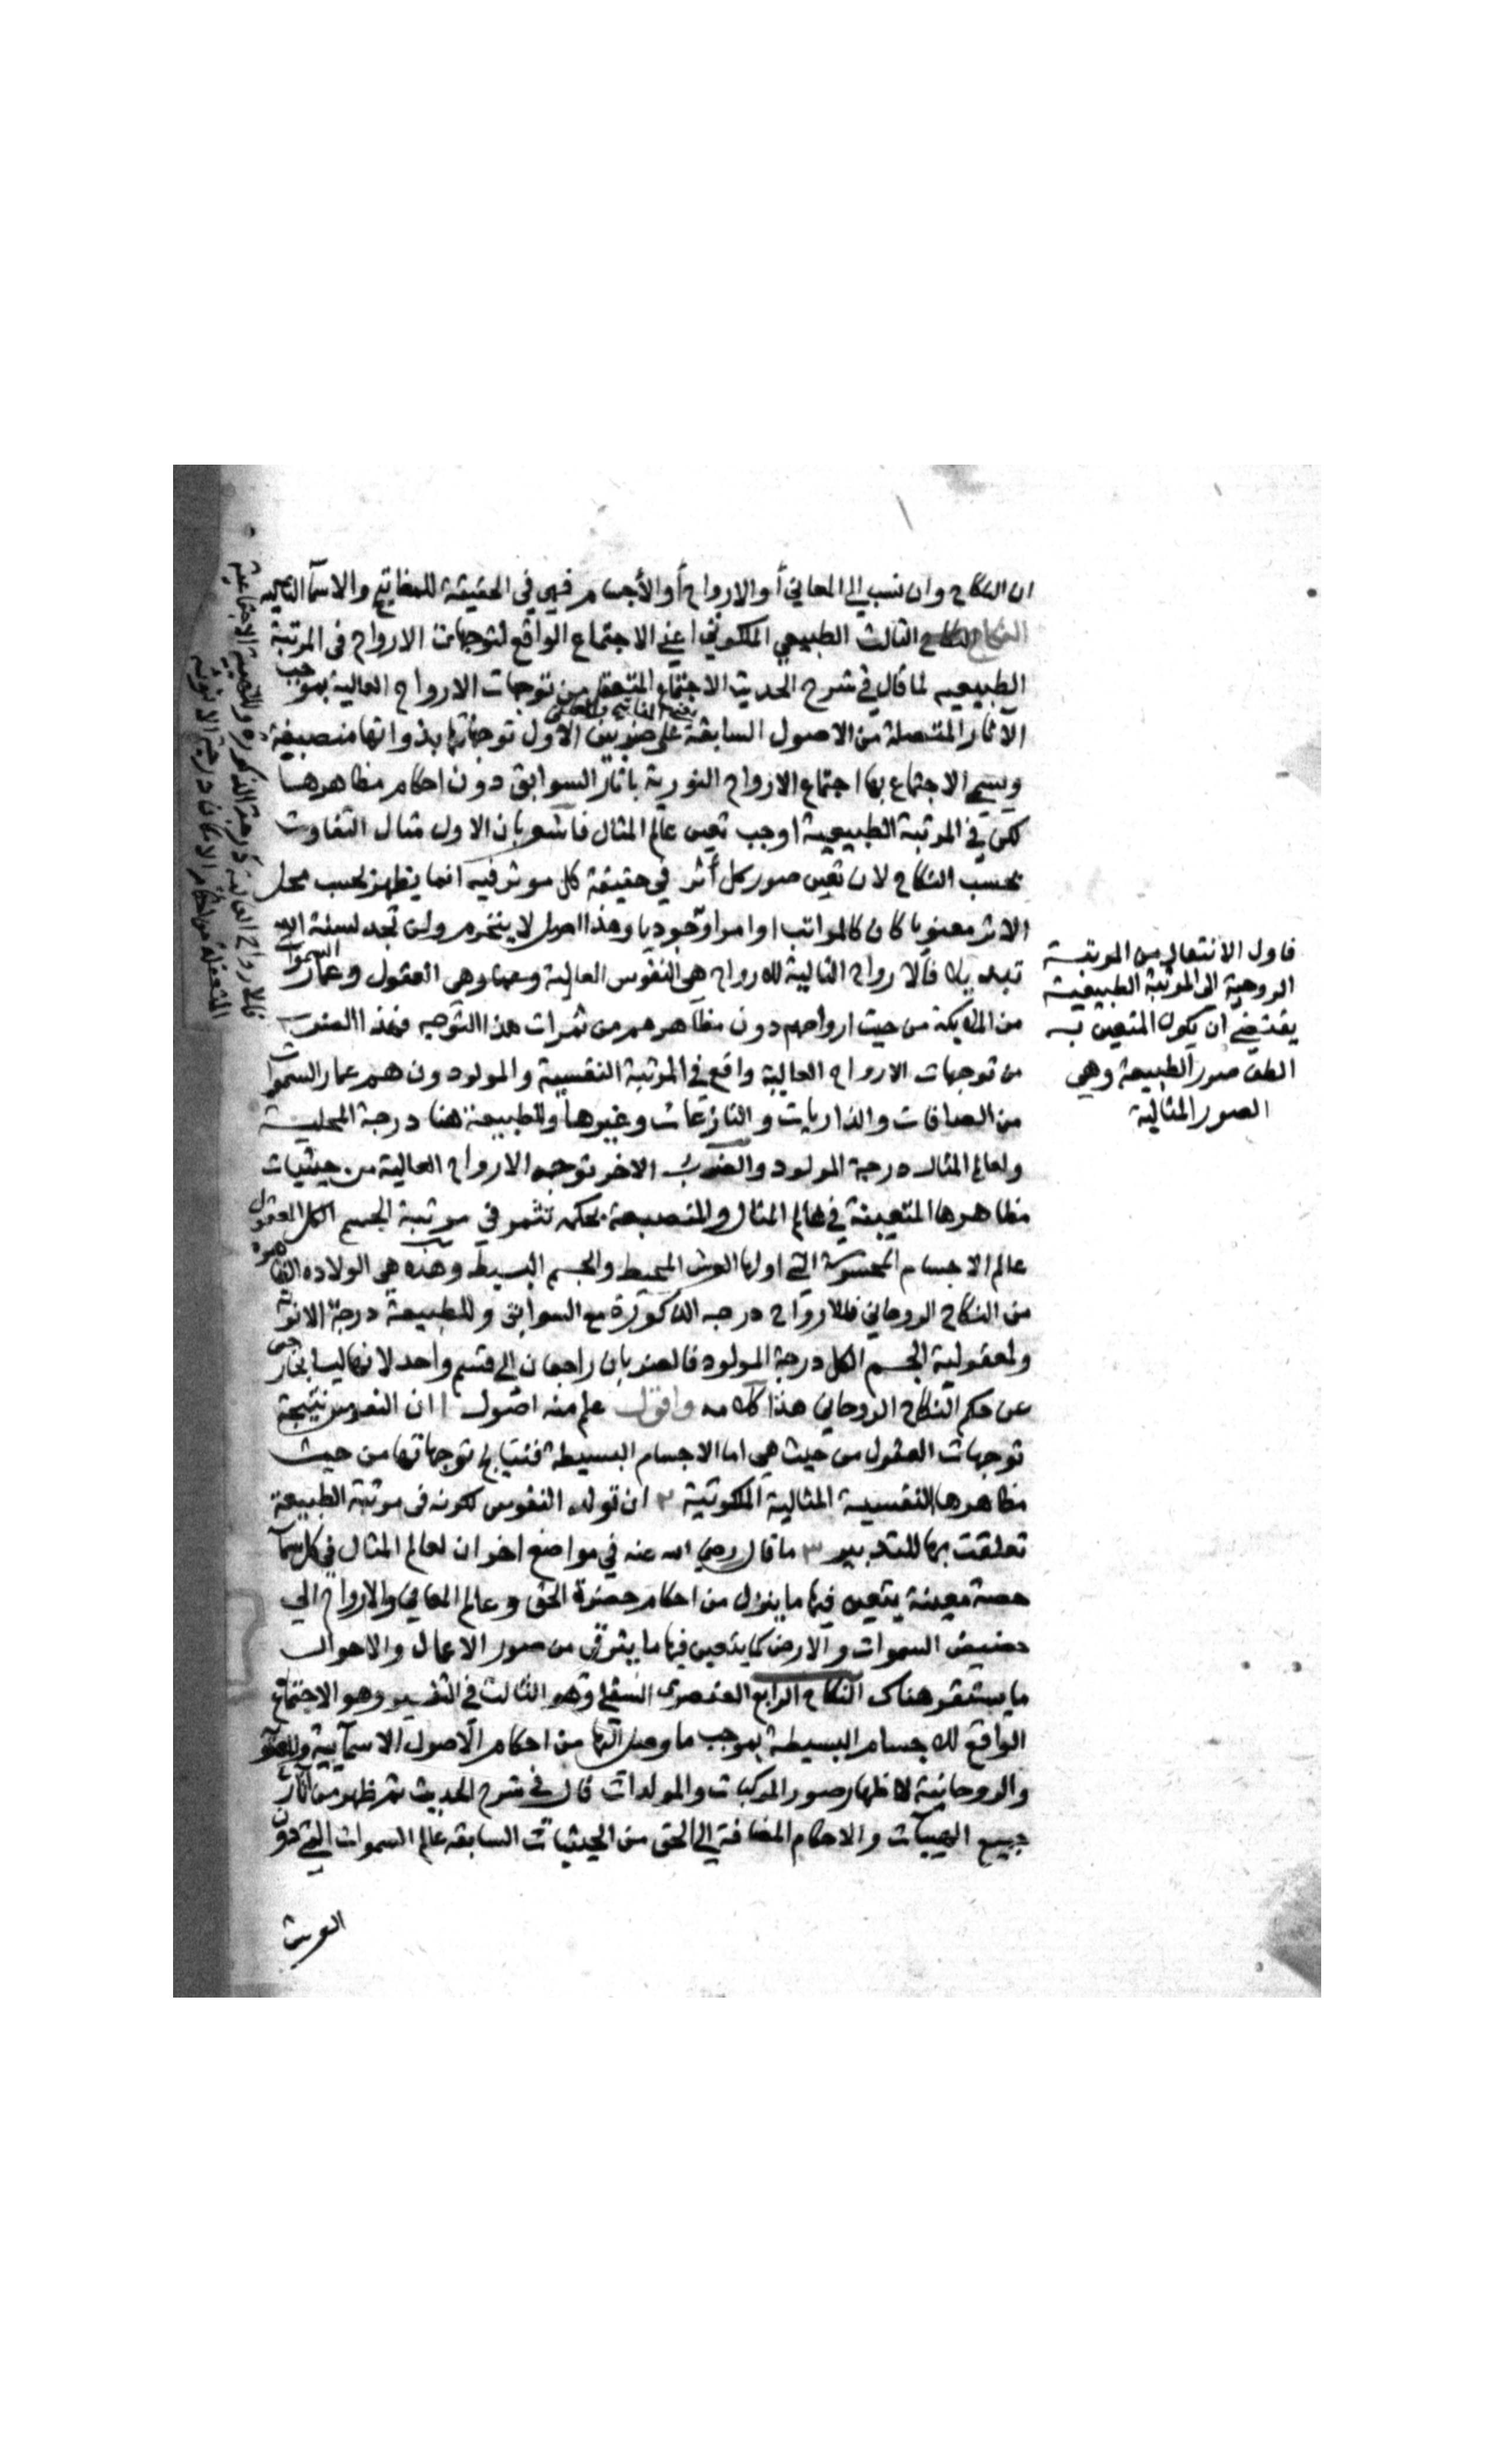 ان النكاح وان نسب الى المعاني أو الارواح أو الأجسام فهي في الحقيقة للمفاتيح والاسمآ التالية
النكاح الثالث الطبيعي الملكوتي اعني الاجتماع الواقع لتوجهات الارواح في المرتبة
الطبيعيه لما قال في شرح الحديث الاجتماع المتحصل من توجهات الارواح العالية بموجب
الآثار المتحصلة من الاصول السابقة على ضربين الأول توجهاتها بذواتها منصبغة
يعني المفاتيح والمعاني
ويسمى الاجتماع بها اجتماع الارواح النورية باثار السوابق دون احكام مظاهرها
لكن في المرتبة الطبيعية اوجب تعين عالم المثال فاشعر بان الاول مثال التفاوت
بحسب النكاح لان تعين صور كل أثر في حقيقة كل موثر فيه انما يظهر بحسب محل
الاثر معنويا كان كالمراتب او امرا وجوديا وهذا اصل لا ينخرم ولن تجد لسنة الله
تبديلا فالارواح التالية للارواح هي النفوس العالية وهي العقول وعمار السموات
من الملايكة من حيث ارواحهم دون مظاهرهم من ثمرات هذا التوجه فهذا الضرب
من توجهات الارواح العالية واقع في المرتبة النفسية والمولودون هم عمار السموات
من الصافات والذاريات والنازعات وغيرها وللطبيعة هنا درجة المحلية
ولعالم المثال درجة المولود والضرب الاخر توجه الارواح العالية من حيثيات
مظاهرها المتعينة في عالم المثال والمنصبغة بحكمه تثمر في مرتبة الجسم الكل المعقول
عالم الاجسام المحسوسة التي اولها العرش المحيط والجسم البسيط وهذه هي الولاده الثانية
من النكاح الروحاني فللارواح درجه الذكورة مع السوابق وللطبيعة درجة الانوثة
ولمعقولية الجسم الكل درجة المولود فالضربان راجعان الى قسم واحد لانهما ليسا بخارجين
عن حكم النكاح الروحاني هذا كلامه واقول علم منه اصول ا ان النفوس نتيجة
توجهات العقول من حيث هي اما الاجسام البسيطة فنتايج توجهاتها من حيث
مظاهرها النفسية المثالية الملكوتية ٢ ان تولد النفوس لكونه في مرتبة الطبيعة
تعلقت بها للتدبير ٣ ما قال رضي الله عنه في مواضع اخر ان لعالم المثال في كل سمآ
حصة معينة يتعين فيها ما ينزل من احكام حضرة الحق وعالم المعاني والارواح الى
حضيض السموات والارض كما يتعين فيها ما يترقى من صور الاعمال والاحوال
ما يستقر هناك النكاح الرابع العنصري السفلي وهو الثالث في التفسير وهو الاجتماع
الواقع للاجسام البسيطة بموجب ما وصل اليها من احكام الاصول الاسمآيية والمعنوية
والروحانية لاظهار صور المركبات والمولدات قال في شرح الحديث ثم ظهر من آثار
جميع الهيئات والاحكام المضافة الى الحق من الحيثيات السابقه عالم السموات التي دون
العرش
فاول الانتقال من المرتبة
الروحية الى المرتبة الطبيعية
يقتضي ان يكون المتعين به
الطف صور الطبيعة وهي
الصور المثالية
فللارواح العالية درجة الذكورة وللهيئة الاجتماعية
المتعقلة من احكام الامكان درجة الانوثة